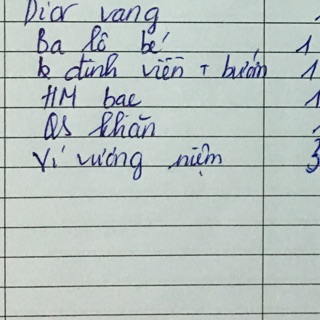 Dior vang 1
Ba lô bé 1
b đinh viền + bướm 1
HM bac 1
QS khăn 1
Ví vương niệm 3